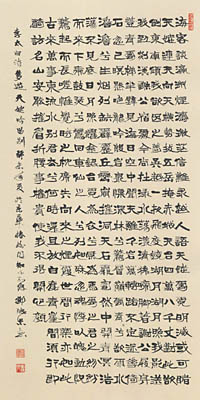 海客談瀛洲煙濤微茫信難求越人語天姥雲霞明滅或可睹
天姥連天向天橫勢拔五嶽掩赤城天台四萬八千丈對此
欲倒東南傾我欲因之夢吳越一夜飛度鏡湖月湖月照我影
送我至剡溪謝公宿處今尚在淥水蕩漾清猿啼腳著謝公屐
身登青雲梯半壁見海日空中聞天雞千巖萬轉路不定迷花倚
石忽已暝熊咆龍吟殷巖泉慄深林兮驚層巔雲青青兮欲雨
水澹澹兮生煙列缺霹靂丘巒崩摧洞天石扉訇然中開青冥浩
蕩不見底日月照耀金銀臺霓為衣兮風為馬雲之君兮紛紛
而來下虎鼓瑟兮鸞回車仙之人兮列如麻忽魂悸以魄動怳
驚起而長嗟惟覺時之枕席失向來之煙霞世間行樂亦如此
古來萬事東流水別君去兮何時還且放白鹿青崖間須行即騎
訪名山安能摧眉折腰事權貴使我不得開心顏
李太白詩夢遊天姥吟留別